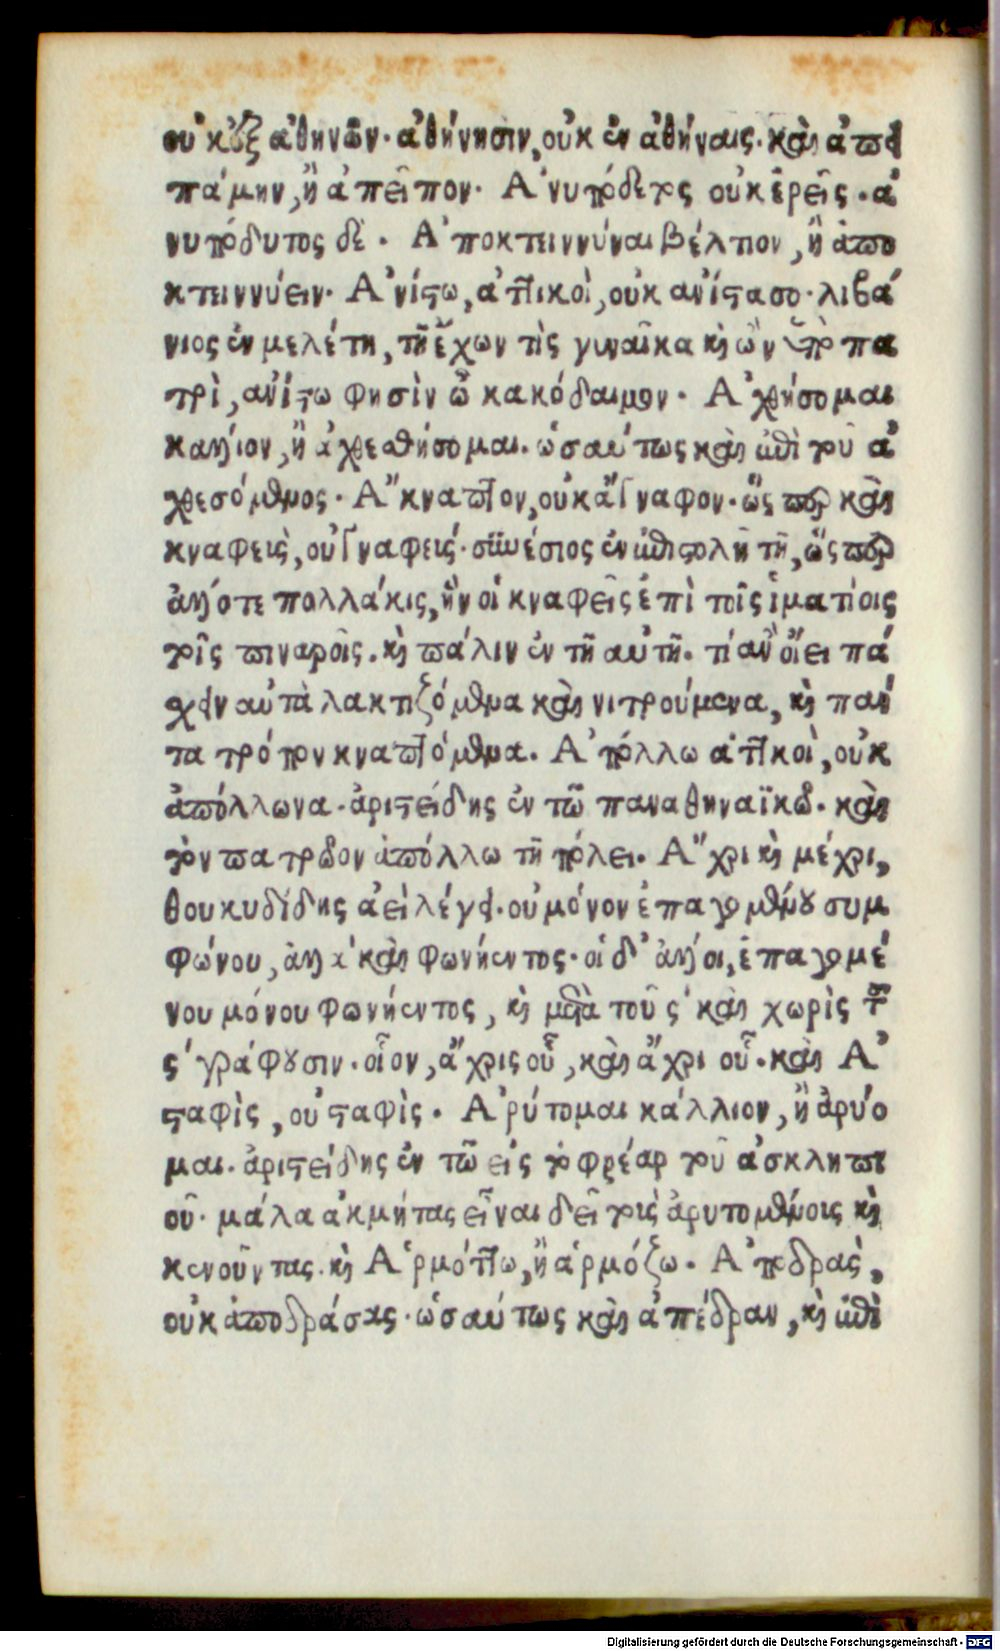 οὐκ ἐξ ἀθηνῶν· ἀθήνησιν, οὐκ ἐν ἀθήναις· καὶ ἀπει
πάμην, ἢ ἀπεῖπον· Ἀνυπόδετος οὐκ ἐρεῖς· ἀ
νυπόδυτος δέ· Ἀποκτειννύναι βέλτιον, ἢ ἀπο
κτειννύειν· Ἀνίστω, ἀττικοὶ, οὐκ ἀνίστασο· λιβά
νιος ἐν μελέτῃ, τῇ ἔχων τὶς γυναῖκα καὶ ὢν ὑπὸ πα
τρὶ, ἀνίστω φησὶν ὦ κακόδαιμον· Ἀχθήσομαι
κάλλιον, ἢ ἀχθεσθήσομαι· ὡσαύτως καὶ ἐπὶ τοῦ ἀ
χθεσόμενος· Ἄκναπτον, οὐκ ἄγναφον· ὥσπερ καὶ
κναφεὶς, οὐ γναφείς· συνέσιος ἐν ἐπιστολῇ τῇ, ὥσπερ
ἄλλοτε πολλάκις, ἢν οἱ κναφεῖς ἐπὶ τοῖς ἱματίοις
τοῖς πιναροῖς· καὶ πάλιν ἐν τῇ αὐτῇ· τί ἂν οἴει πά
χειν αὐτὰ λακτιζόμενα καὶ νιτρούμενα, καὶ πάν
τα τρόπον κναπτόμενα· Ἀπόλλω ἀττικοὶ, οὐκ
ἀπόλλωνα· ἀριστείδης ἐν τῷ παναθηναϊκῷ· καὶ
τὸν πατρῷον ἀπόλλω τῇ πόλει· Ἄχρι καὶ μέχρι,
θουκυδίδης ἀεὶ λέγει· οὐ μόνον ἐπαγομένου συμ
φώνου, ἀλλὰ καὶ φωνήεντος· οἱ δ' ἄλλοι, ἐπαγομέ
νου μόνου φωνήεντος, καὶ μετὰ τοῦ ς καὶ χωρὶς τοῦ
ς γράφουσιν· οἷον, ἄχρις οὗ, καὶ ἄχρι οὗ· καὶ Ἀ
σταφὶς, οὐ σταφὶς· Ἀρύτομαι κάλλιον, ἢ ἀρύο
μαι· ἀριστείδης ἐν τῷ εἰς τὸ φρέαρ τοῦ ἀσκληπι
οῦ· μάλα ἀκμήτας εἶναι δεῖ τοὺς ἀρυτομένους καὶ
κενοῦντας· καὶ Ἁρμόττω, ἢ ἁρμόζω· Ἀποδρὰς,
οὐκ ἀποδράσας· ὡσαύτως καὶ ἀπέδραν, καὶ ἐπὶ
Digitalisierung gefördert durch die Deutsche Forschungsgemeinschaft - DFG